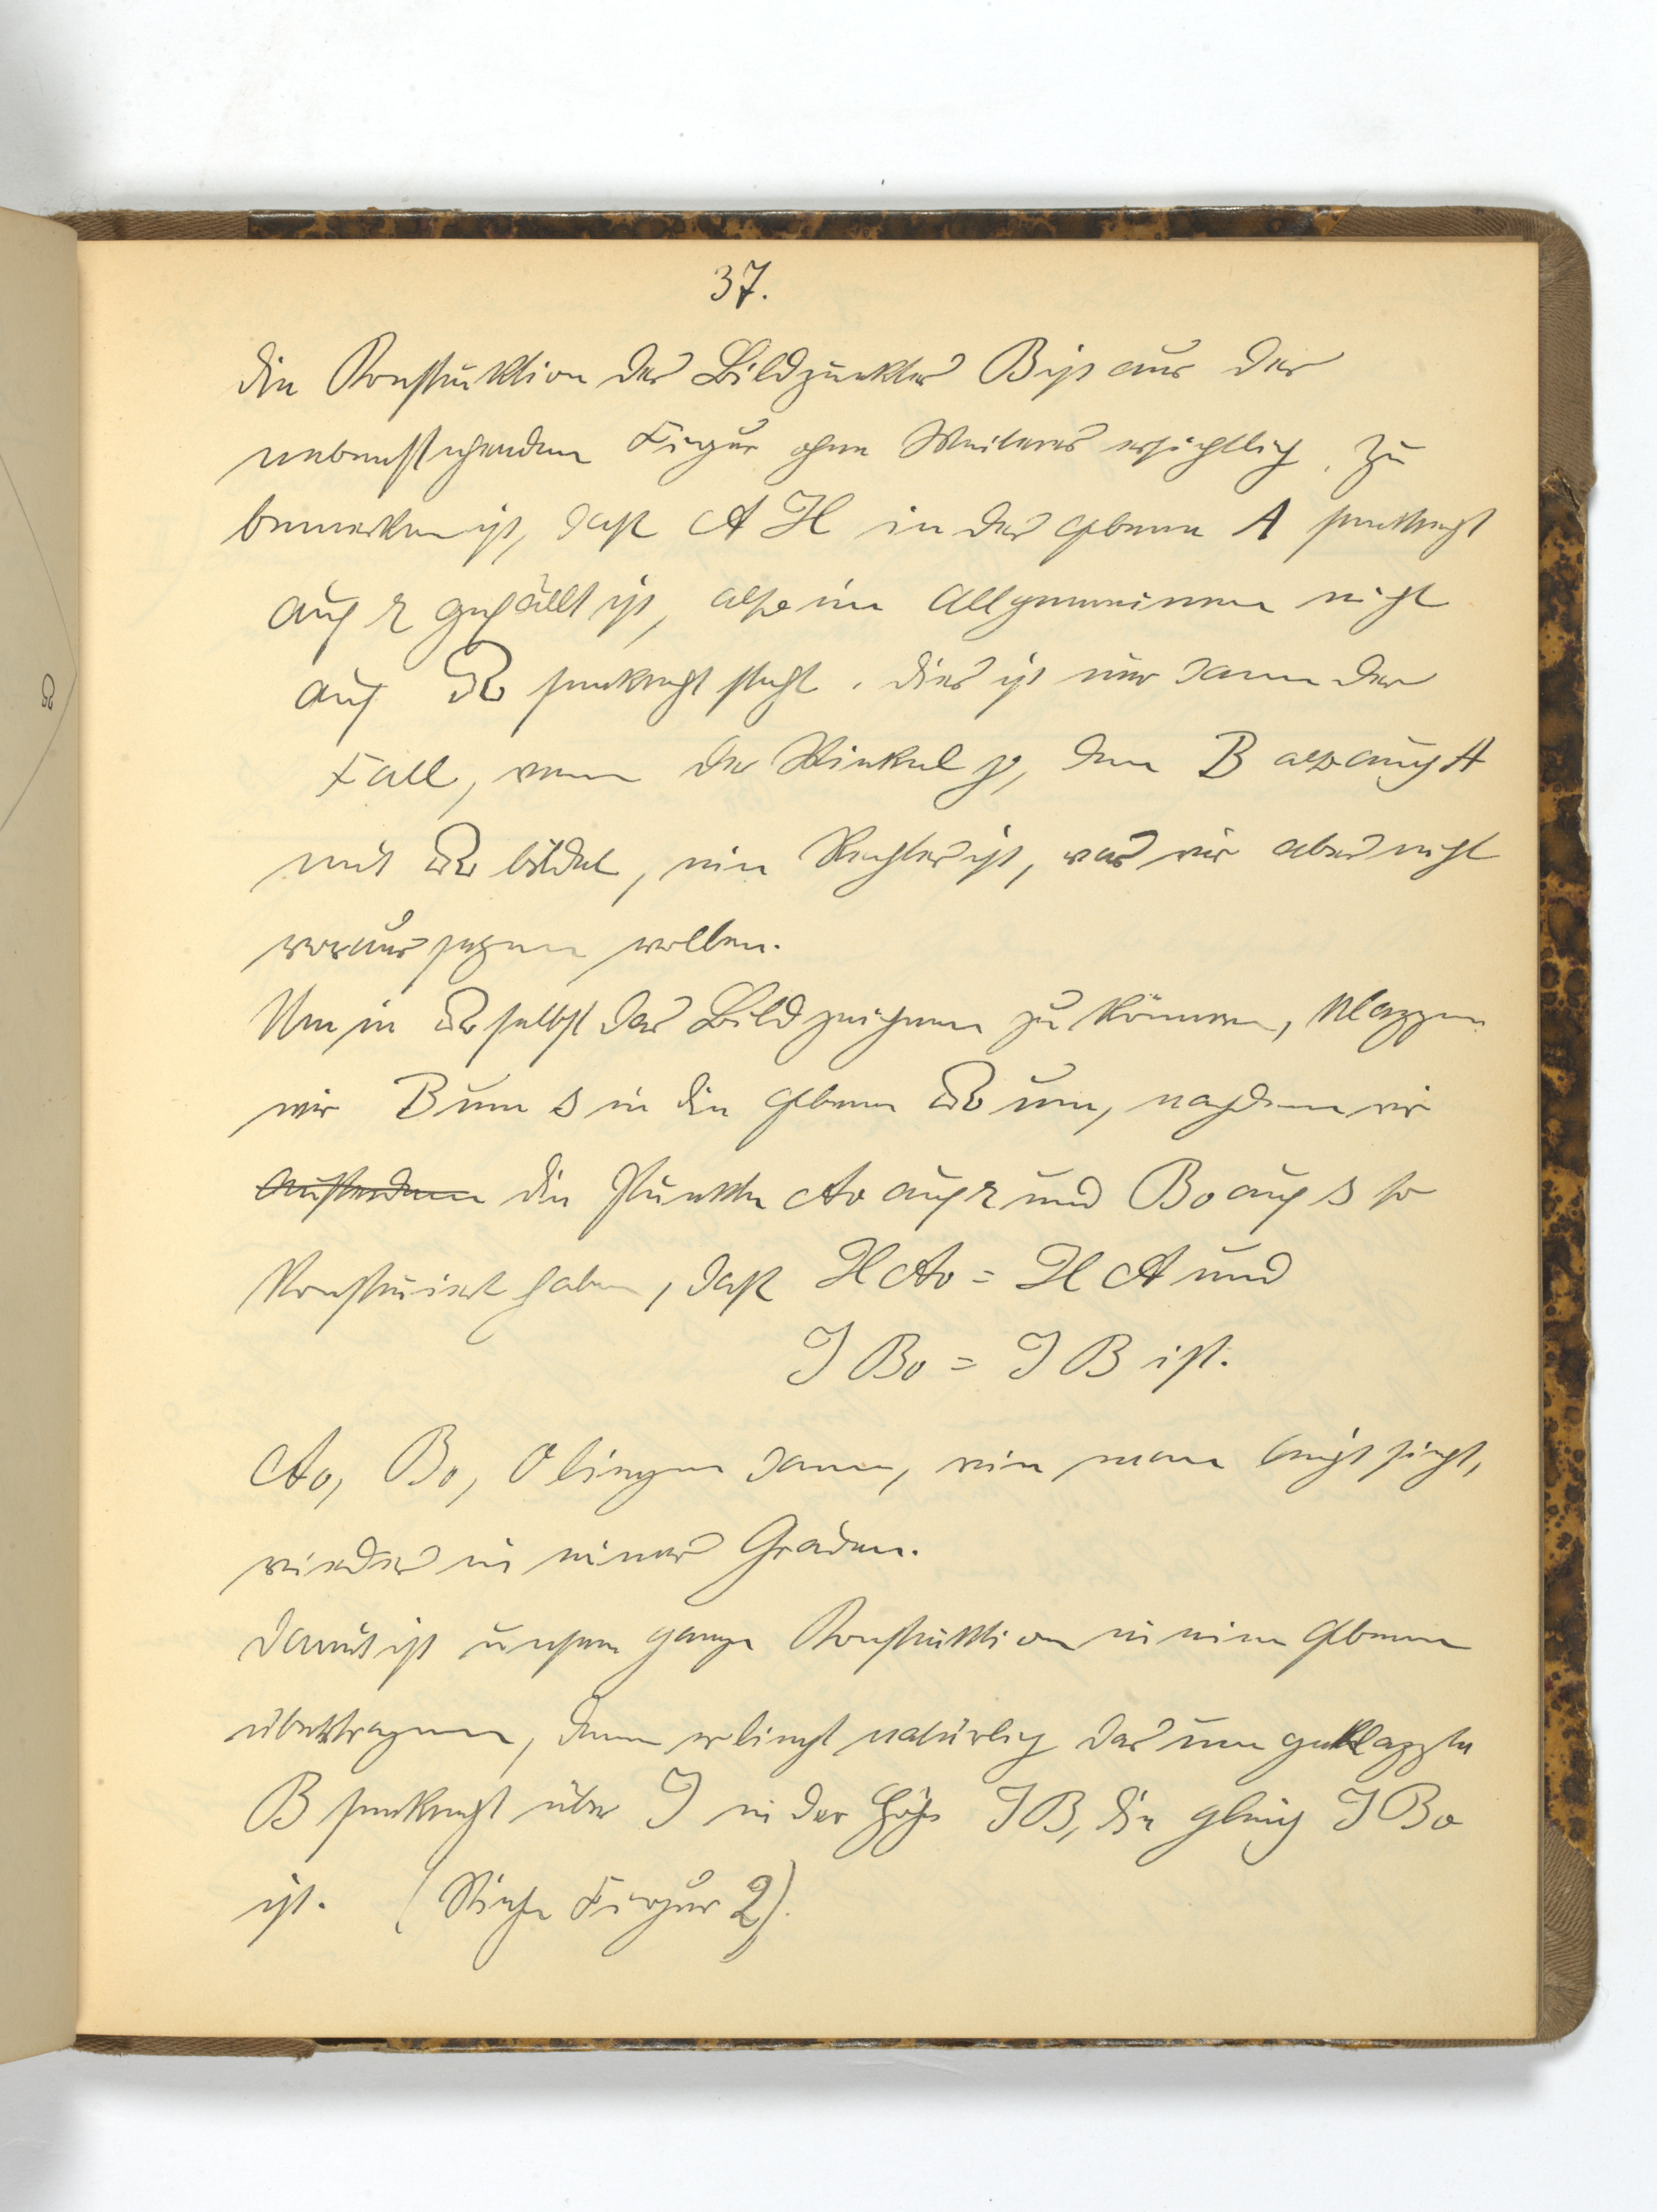 37.
Die Konstruktion des Bildpunktes B ist aus der
nebenstehenden Figur ohne Weiteres ersichtlich. Zu
bemerken ist, daß A H in der Ebene A senkrecht
auf r gefällt ist, also im Allgemeinen nicht
auf senkrecht steht. Dies ist nur dann der
Fall, wenn der Winkel φ, den B also auch A
mit bildet, ein Rechter ist, was wir aber nicht
voraussetzen wollen.
Um in selbst das Bild zeichnen zu können, klappen
wir B um s in die Ebene um, nachdem wir
die Punkte A₀ auf r und B₀ auf s so
konstruirt haben, daß H A₀ = H A und
J B₀ = J B ist.
A₀, B₀, O liegen dann, wie man leicht sieht,
wieder in einer Graden.
Damit ist unsere ganze Konstruktion in eine Ebene
übertragen, denn es liegt natürlich das um geklappte
B senkrecht über J in der Höhe J B, die gleich J B₀
ist. (Siehe Figur 2).